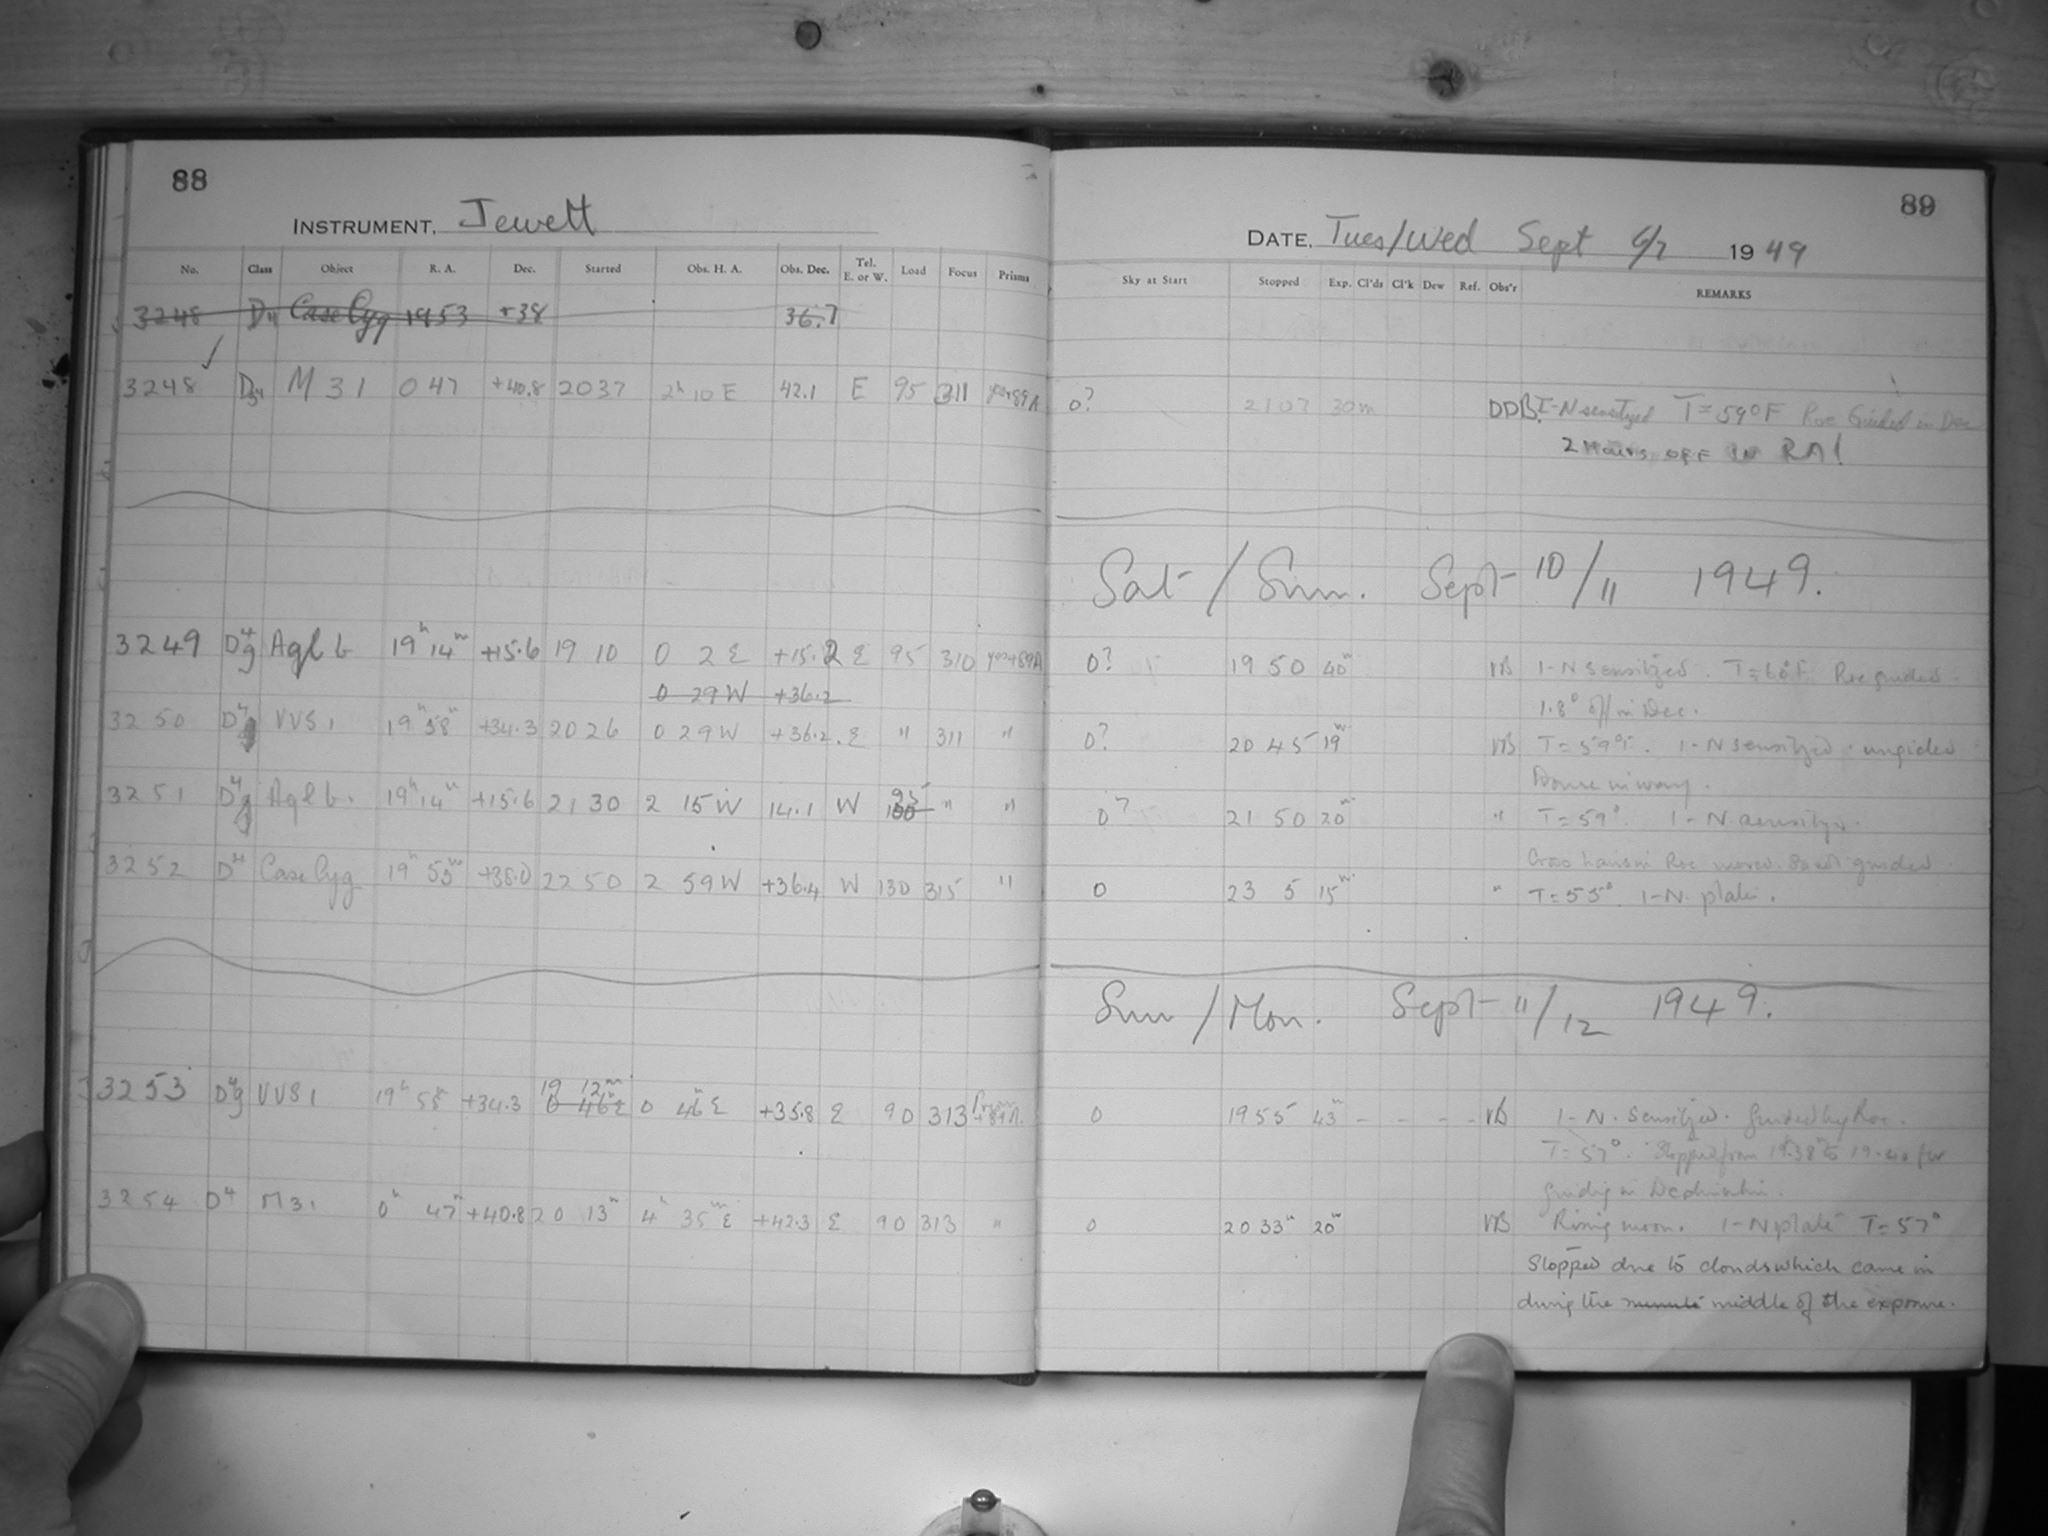 88
INSTRUMENT. Jewett
No. Class Object R. A. Dec. Started Obs. H. A. Obs. Dec. Tel. E. or W. Load Focus Prisms
3248 D4 Case Cyg 1953 +38 36.7
3248 M 31 0 47 +40.8 2037 2h 10 E 42.1 E 95 311
3249 Aql b 19h 14m +15.6 19 10 0 2 E +15.2 E 95 310
0 29 W +36.2
3250 VVS1 19h 58m +34.3 2026 0 29 W +36.2 E " 311 "
3251 Aql b. 19h 14m +15.6 21 30 2 15 W 14.1 W 95 100 " "
3252 D4 Case Cyg 19h 53m +38.0 22 50 2 59 W +36.4 W 130 315 "
19 12m
3253 VVS1 19h 58m +34.3 0 46 E 0 46 E +35.8 E 90 313
3254 D4 M31 0h 47m +40.8 20 13m 4h 35m E +42.3 E 90 313 "
89
DATE. Tues/Wed Sept 6/7 1949
Sky at Start Stopped Exp. Cl'ds Cl'k Dew Ref. Obs'r REMARKS
0? 2107 30m DDB. I-N sensitized T=59°F Roe Guided in Dec
2 Hours OFF IN RA!
Sat / Sun. Sept 10/11 1949.
0? 19 50 40m VB 1-N sensitized. T=60°F Roe guided.
1.8° off in Dec.
0? 20 45 19m VB T=59°F. 1-N sensitized. unguided
Dome in way.
0? 21 50 20m " T=59°. 1-N sensitized.
Cross hairs in Roe moved. guided
0 23 5 15m " T=55°. 1-N. plate.
Sun / Mon. Sept 11/12 1949.
0 1955 43m - - - - VB 1-N. Sensitized. Guided by Roe.
T=57°. Stopped from 19.38 to 19.40 for
guiding in Declination.
0 20 33m 20m VB Rising moon. 1-N plate T=57°
Stopped due to clouds which came in
during the minute middle of the exposure.